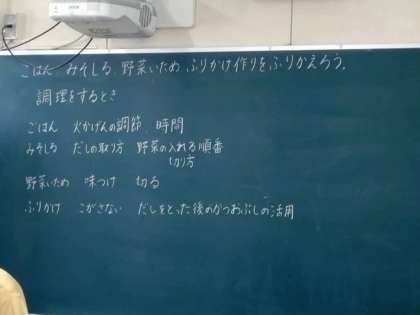 ごはん みそしる、野菜いため、ふりかけ作りをふりかえろう。
調理をするとき
ごはん 火かげんの調節、時間
みそしる だしの取り方 野菜の入れる順番
切り方
野菜いため 味つけ 切る
ふりかけ こがさない だしをとった後のかつおぶしの活用